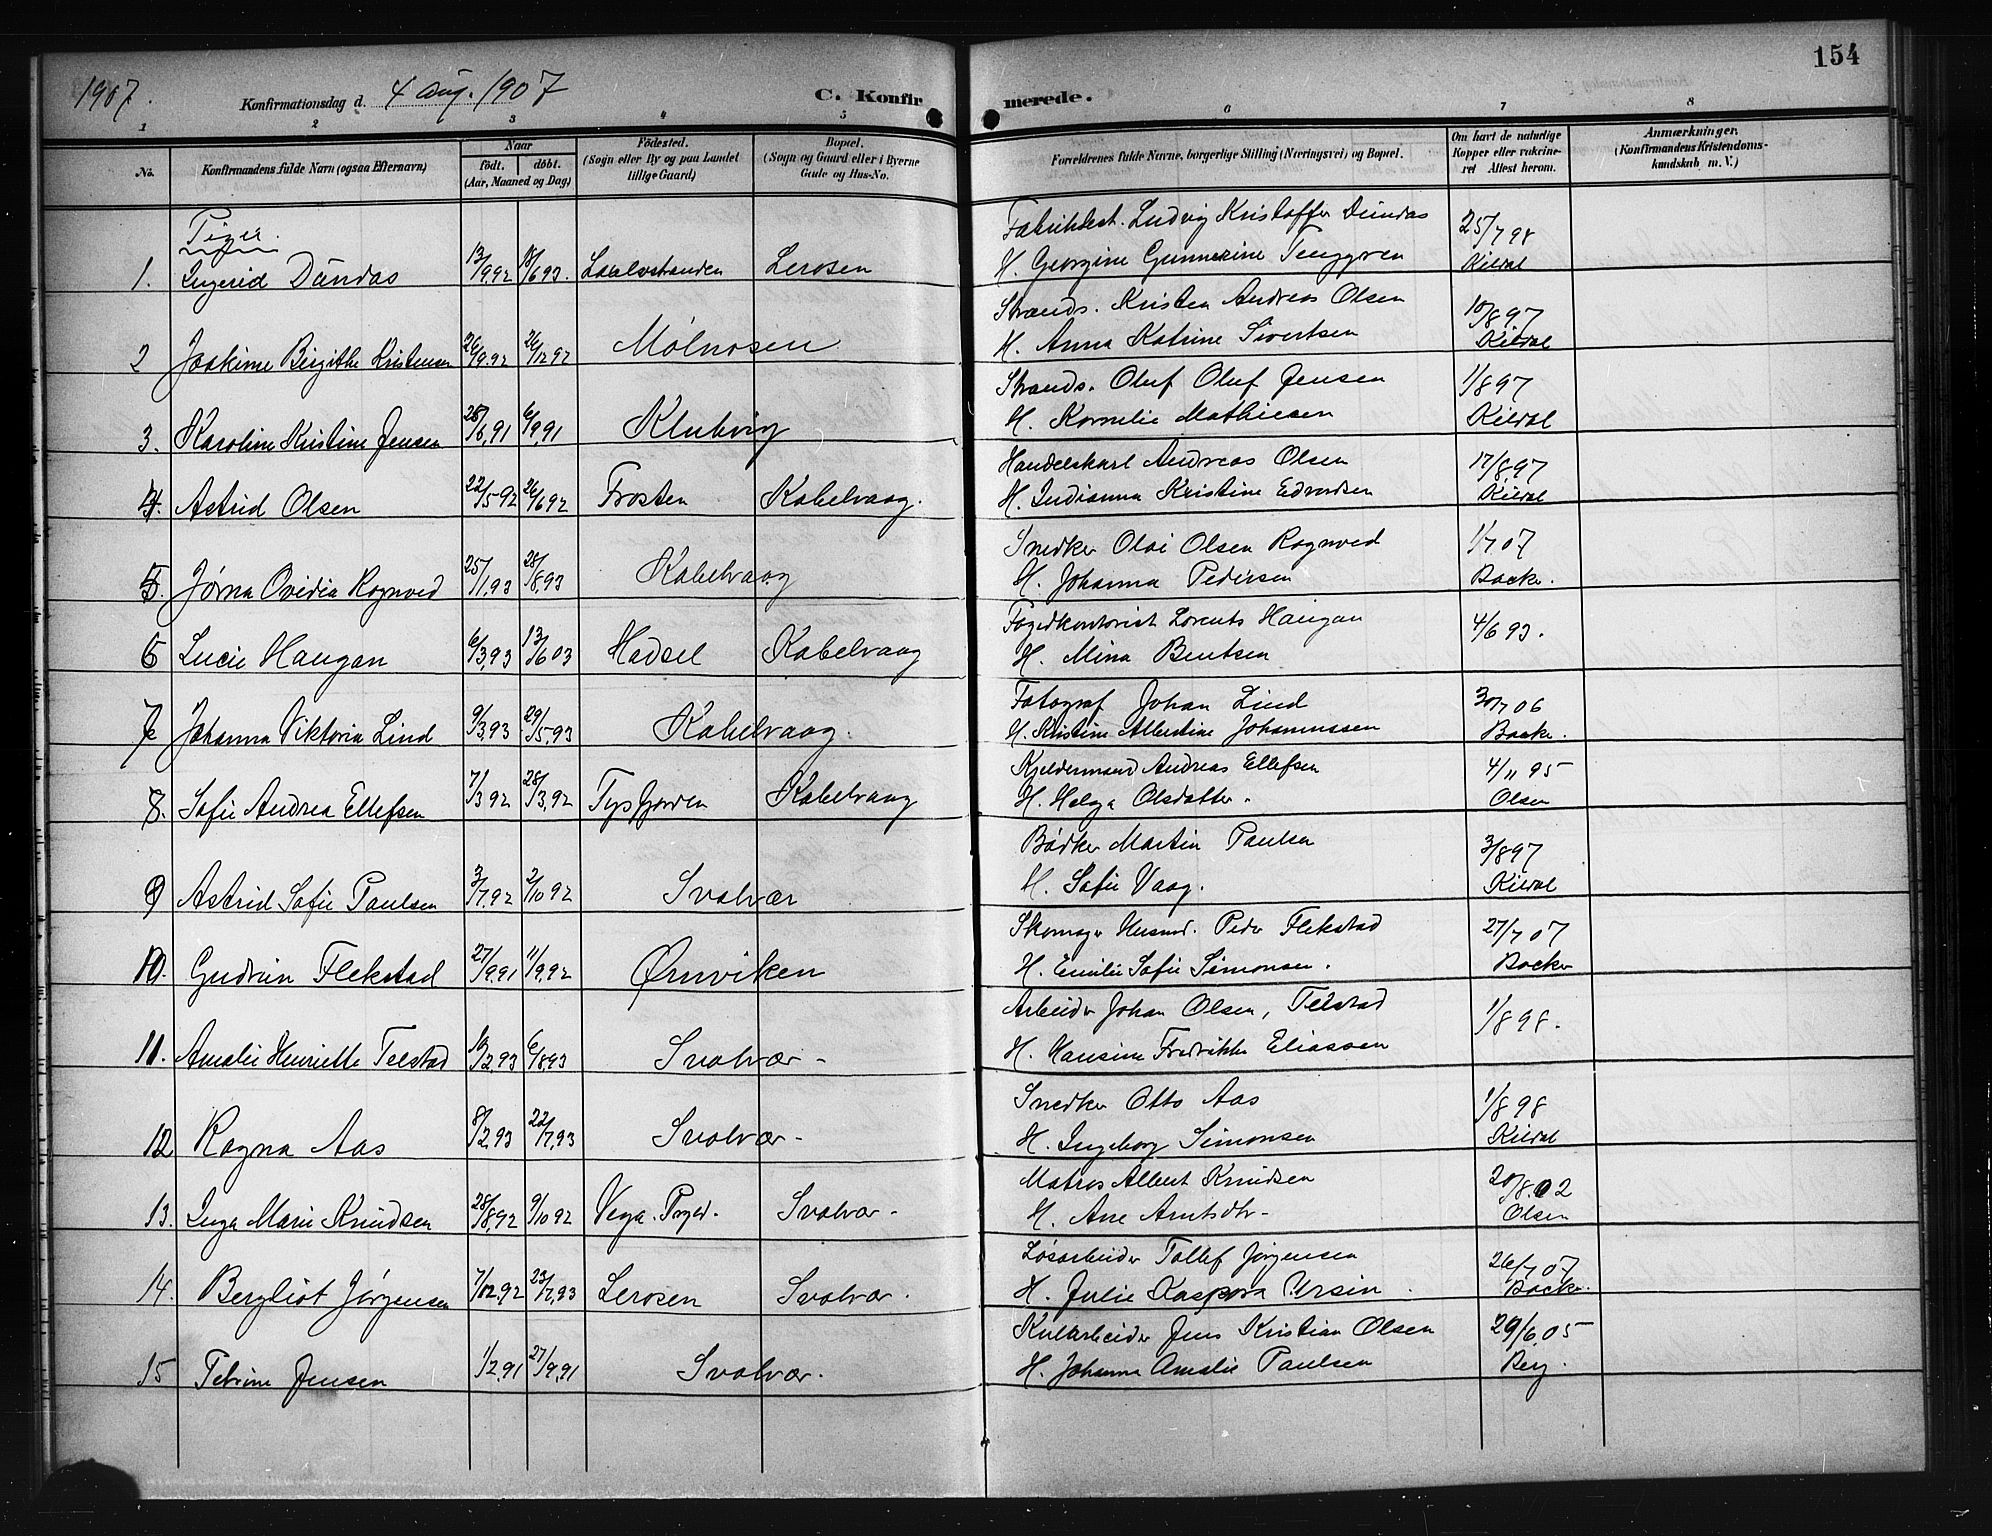 154
1907.
Konfirmationsdag d. 4 Aug. 1907
C. Konfirmerede.
1 2 3 4 5 6 7 8
No.
Konfirmandens fulde Navn (ogsaa Efternavn)
Naar
født. døbt.
(Aar, Maaned og Dag)
Fødested.
(Sogn eller By og paa Landet
tillige Gaard)
Bopæl.
(Sogn og Gaard eller i Byerne
Gade og Hus-No.
Forældrenes fulde Navne, borgerlige Stilling (Næringsvei) og Bopæl.
Om havt de naturlige
Kopper eller vakcine-
ret Attest herom.
Anmærkninger.
(Konfirmandens Kristendoms-
kundskab m. V.)
Piger.
Fabrikbest. Ludvig Kristoffer Dundas 25/7 98
1. Ingerid Dundas 13/9.92 18/6 93. Lerosen H. Georgine Gunnerine Tenggren Kildal
Strands. Kristen Andreas Olsen 10/8.97
2 Joakime Birgithe Kristensen 26/9.92 26/12 92 Molnosen H. Anna Katrine Sivertsen Kildal
Strands. Oluf Oluf Jensen 1/8 97
3. Karoline Kristine Jensen 28/6.91 6/9.91 H. Kornelie Mathiesen Kildal
Handelskarl Andreas Olsen 17/8.97
4. Astrid Olsen 22/5 92 26/6 92 Frosten Kabelvaag. H. Indianna Kristine Edvardsen Kildal
Snedker Olai Olsen Rognved 1/7 07
5. Jørna Ovidia Rognved 25/1.93 28/8.93 Kabelvaag H. Johanna Pedersen Backe.
Fogedkontorist Lorents Haugan 4/6 93.
6 Lucie Haugan 6/3.93 13/6 03 Hadsel Kabelvaag H. Mina Bentsen
Fotograf Johan Lind 30/7 06
7. Johanna Viktoria Lind 9/3.93 29/5.93 Kabelvaag. H. Kristine Albertine Johannessen Backe.
Kjeldermand Andreas Ellefsen 4/11 95
8. Sofie Andrea Ellefsen 7/3 92 28/3.92 Tysfjorden Kabelvaag H. Helga Olsdatter. Olsen
Bødker Martin Paulsen 3/8 97
9 Astrid Sofie Paulsen 3/7.92 2/10 92 Svolvær H. Sofie Vaag. Kildal
Skomager Husmd. Peder Flekstad 27/7 07
10. Gudrun Flekstad 27/9.91 11/9.92 Ørnviken H. Emilie Sofie Simonsen. Backe
Arbeider Johan Olsen, Telstad 1/8 98.
11. Amalie Henriette Telstad 10/2.93 6/8.93 Svolvær - H. Hansine Fredrikke Eliassen
Snedker Otto Aas 1/8 98
12 Ragna Aas 8/2.93 22/7.93 Svolvær - H. Ingeborg Simonsen Kildal
Matros Albert Knudsen 20/8.02
13. Inga Marie Knudsen 28/8.92 9/10 92 Vega. Svolvær - H. Ane Arntsdtr - Olsen
Løsarbeider Tollef Jørgensen 26/7 07
14. Bergliot Jørgensen 7/12.92 23/7.93 Lerosen Svolvær. H. Julie Kaspora Ursin. Backe.
Kularbeider Jens Kristian Olsen 29/6 05
15 Petrine Jensen 1/2.91 27/9.91 Svolvær. H. Johanna Amalie Paulsen Berg.